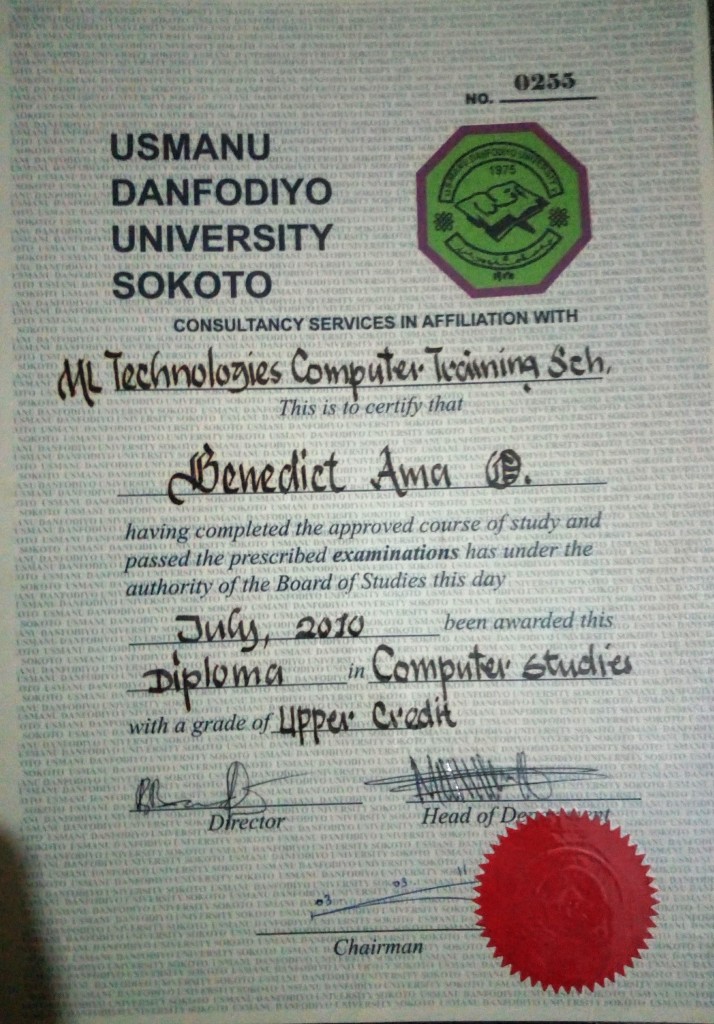 NO. 0255
USMANU
DANFODIYO
UNIVERSITY
SOKOTO
USMANU DANFODIYO UNIVERSITY
1975
CONSULTANCY SERVICES IN AFFILIATION WITH
ML Technologies Computer Training Sch.
This is to certify that
Benedict Ama O.
having completed the approved course of study and
passed the prescribed examinations has under the
authority of the Board of Studies this day
July, 2010 been awarded this
Diploma in Computer Studies
with a grade of Upper Credit
Director
Head of Department
03 03 11
Chairman